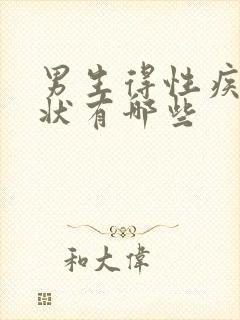 男生得性疾
状有哪些
和大偉